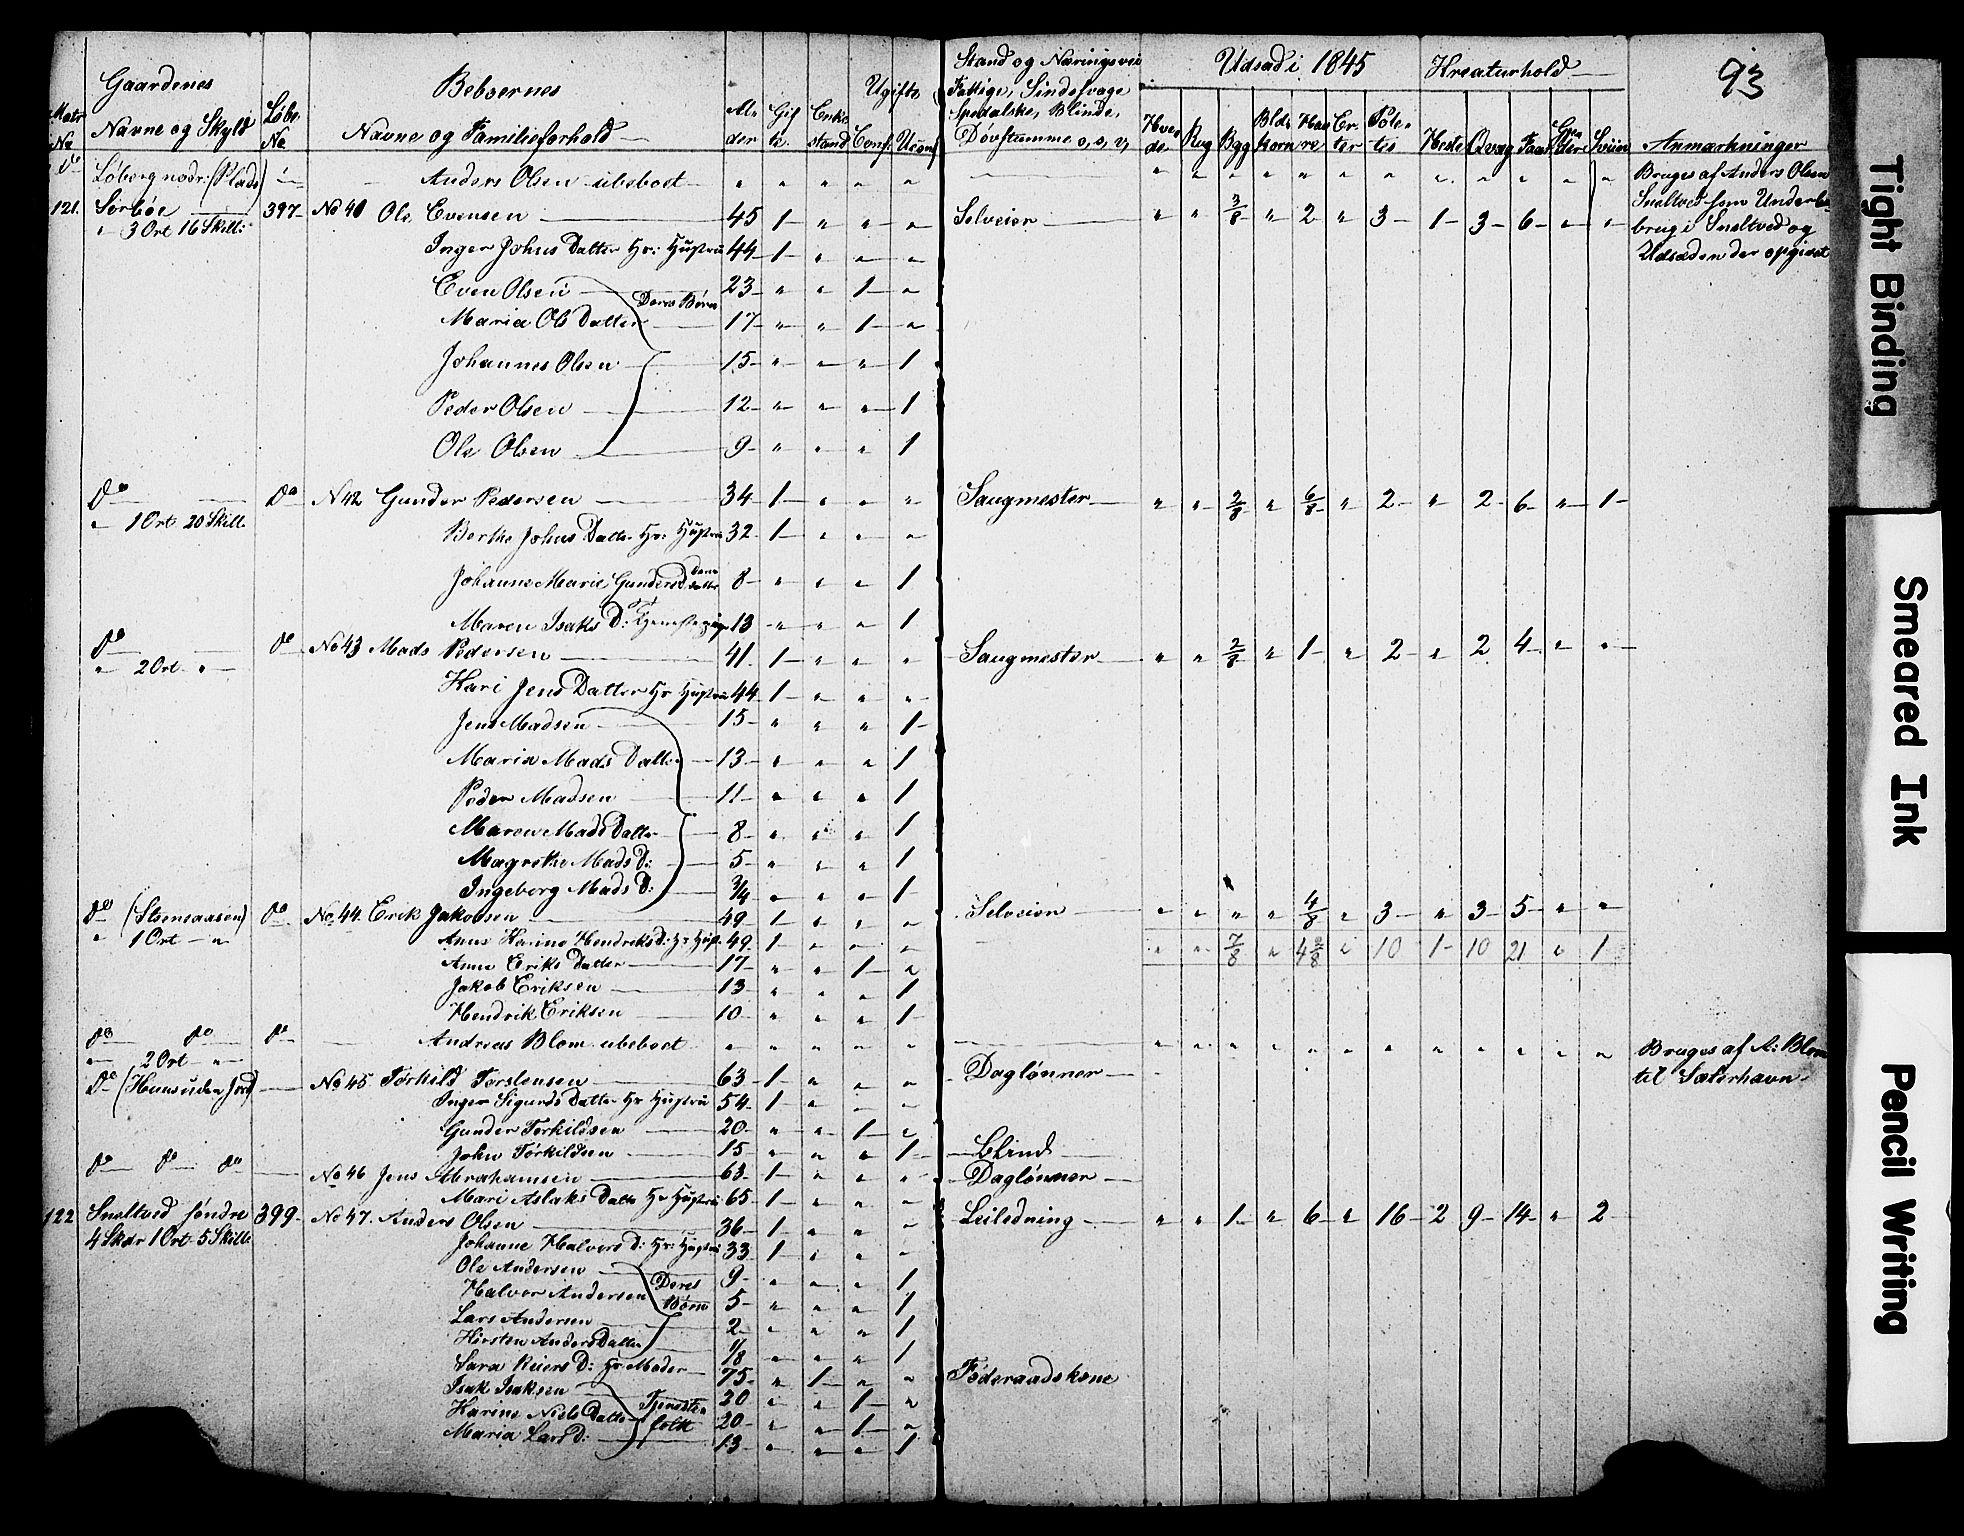 93
Gaardenes Beboernes Ugifte Stand og Næringsvei Udsæd i 1845 Kreaturhold
Matr No Navne og Skyld Løbe No Navne og Familieforhold Al- der Gif te Enke stand Conf: Uconf Fattige, Sindssvage
Spedalske, Blinde,
Døvstumme o, s, v, Hve- de Rug Byg Blds korn Hav re Er- ter Pote- tes Heste Qvæg Faar Gee der Sviin Anmærkninger
Do Løberg nodr: (Plads) Anders Olsen ubeboet " " " " " " " " " " " " " " " " " Bruges af Anders Olsen
121. Sørbøe 397 No 41 Ole Evensen 45 1 " " " Selveier " " 3/8 " 2 " 3 1 3 6 " " Snaltved som Underbe
" 3 Ort 16 Skill: brug i Snaltved og
Inger Johns Datter Hs: Hustru 44 1 " " " Udsæden der opgivet
Even Olsen 23 " " 1 " Deres Børn
Maria Ols Datter 17 " " 1 "
Johannes Olsen 15 " " " 1
Peder Olsen 12 " " " 1
Ole Olsen 9 " " " 1
Do Do No 42 Gunder Pedersen 34 1 " " " Saugmester " " 2/8 " 6/8 " 2 " 2 6 " 1
" 1 Ort 20 Skill.
Berthe Johns Datter Hs: Hustru 32 1 " " "
Johanne Marie Gundersd: deres Datter 8 " " " 1
Maren Isaks D: Tjenestepige 13 " " " 1
Do Do No 43 Mads Pedersen 41 1 " " " Saugmester " " 2/8 " 1 " 2 " 2 4 " "
" 2 Ort "
Kari Jens Datter Hs Hustru 44 1 " " "
Jens Madsen 15 " " " 1
Maria Mads Datter 13 " " " 1
Peder Madsen 11 " " " 1
Maren Mads Datter 8 " " " 1
Magrethe Mads D: 5 " " " 1
Ingeborg Mads D: 3/4 " " " 1
Do (Steensaasen) Do No 44. Erik Jakobsen 49 1 " " " Selveier " " " " 4/8 " 3 " 3 5 " "
" 1 Ort " Anne Karine Hendriks D: Hs Hust. 49 1 " " " " " 7/8 " 4 2/8 " 10 1 10 21 " 1
Anne Eriks Datter 17 " " 1 "
Jakob Eriksen 13 " " " 1
Hendrik Eriksen 10 " " " 1
Do Do Do Andreas Blom ubeboet " " " " " " " " " " " " " " " " " Bruges af A: Blom
" 2 Ort " til Sæterhavn
Do (Huus uden Jord) No 45 Torkild Torstensen 63 1 " " " Daglønner
Inger Sigurds Datter Hs Hustru 54 1 " " "
Gunder Torkildsen 20 " " 1 "
John Torkildsen 15 " " " 1 Blind
Do Do Do No 46 Jens Abrahamsen 63 1 " " " Daglønner
Mari Aslaks Datter Hs Hustru 65 1 " " "
122 Snaltved søndre 399 No 47. Anders Olsen 36 1 " " " Leilending " " 1 " 6 " 16 2 9 14 " 2
4 Skdr 1 Ort 5 Skill.
Johanne Halvors D: Hs: Hustru 33 1 " " "
Ole Andersen 9 " " " 1 Deres Børn
Halvor Andersen 5 " " " 1
Lars Andersen 2 " " " 1
Kirsten Anders Datter 1/8 " " " 1
Sara Reiers D: Hs Moder 75 " 1 " " Føderaadskone
Isak Isaksen 20 " " 1 " Tjeneste folk
Karine Niels Datter 20 " " 1 "
Maria Lars D: 13 " " " 1
Tight Binding
Smeared Ink
Pencil Writing